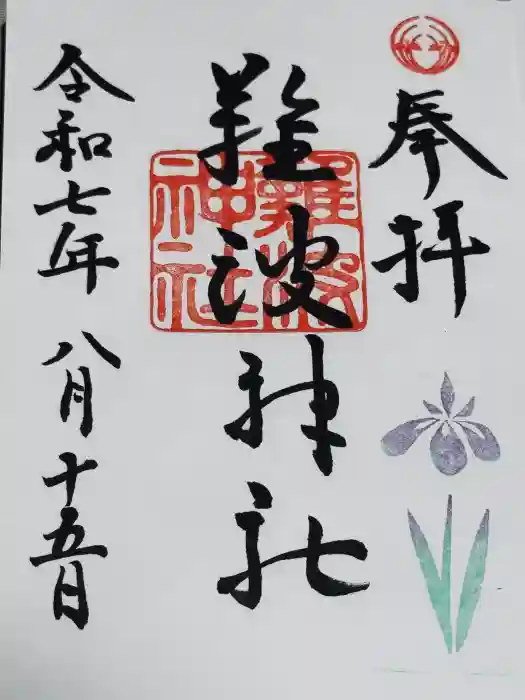 奉拝
難波神社
難波神社
令和七年 八月十五日